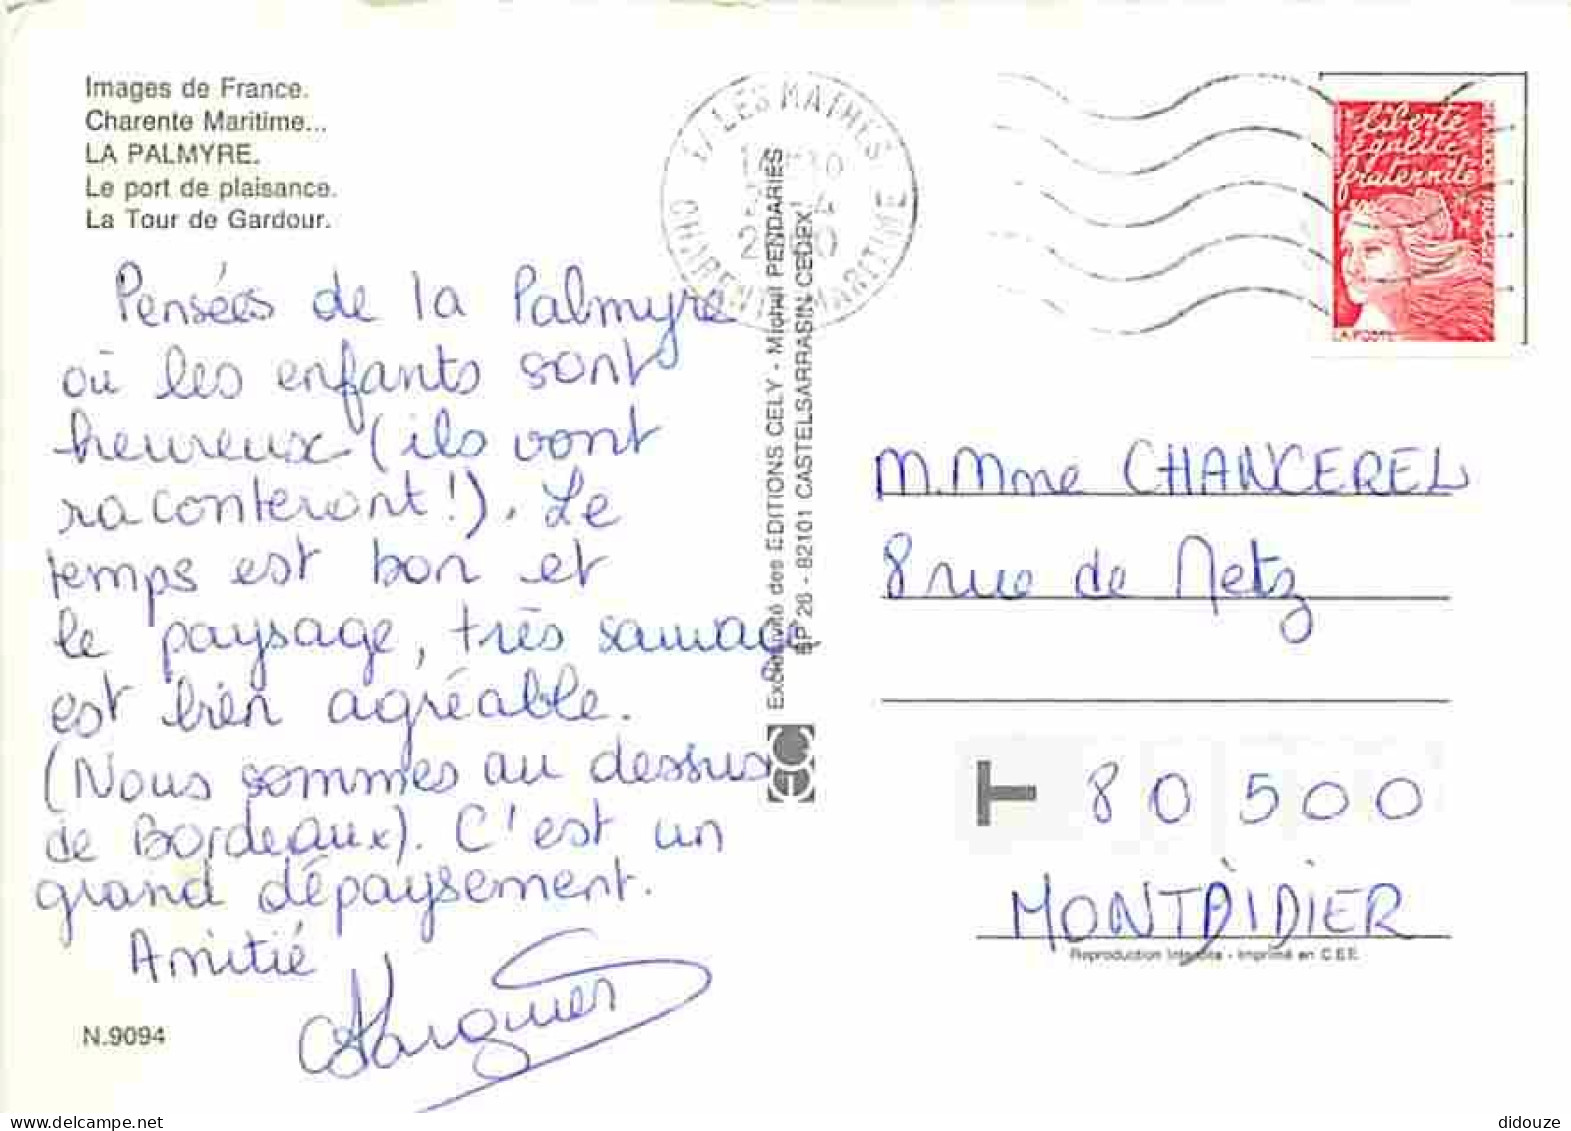 Images de France.
Charente Maritime...
LA PALMYRE.
Le port de plaisance.
La Tour de Gardour.
Pensées de la Palmyre
où les enfants sont
heureux (ils vont
raconteront!). Le
temps est bon et
le paysage, très sauvage
est bien agréable.
(Nous sommes au dessus
de Bordeaux). C'est un
grand dépaysement.
Amitié
N.9094
17 LES MATHES
CHARENTE MARITIME
Exclusivité des EDITIONS CELY - Michel PENDARIES
BP 26 - 82101 CASTELSARRASIN CEDEX
liberté
égalité
fraternité
LA POSTE
M. Mme CHANCEREL
8 rue de Metz
80500
MONTDIDIER
Reproduction Interdite - Imprimé en C.E.E.
didouze